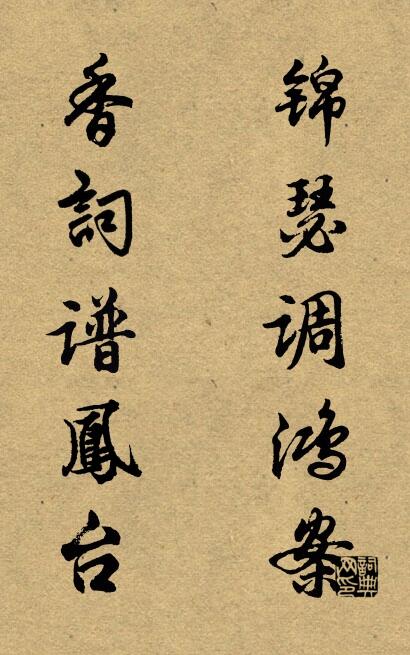 锦瑟调鸿案
香詞谱鳳台
詞典网印